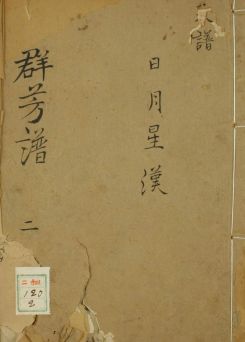 譜
日月星漢
群芳譜
二
120
2